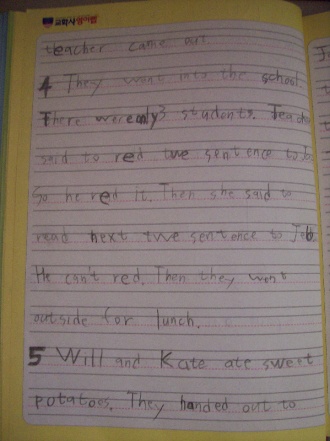 교회사
teacher came out.
4 They went into the school.
There were only 3 students. Teach
said to red twe sentence to Jo
So he red it. Then she said to
read next twe sentence to Job.
He can't red. Then they went
outside for lunch.
5 Will and Kate ate sweet
potatoes. They handed out to